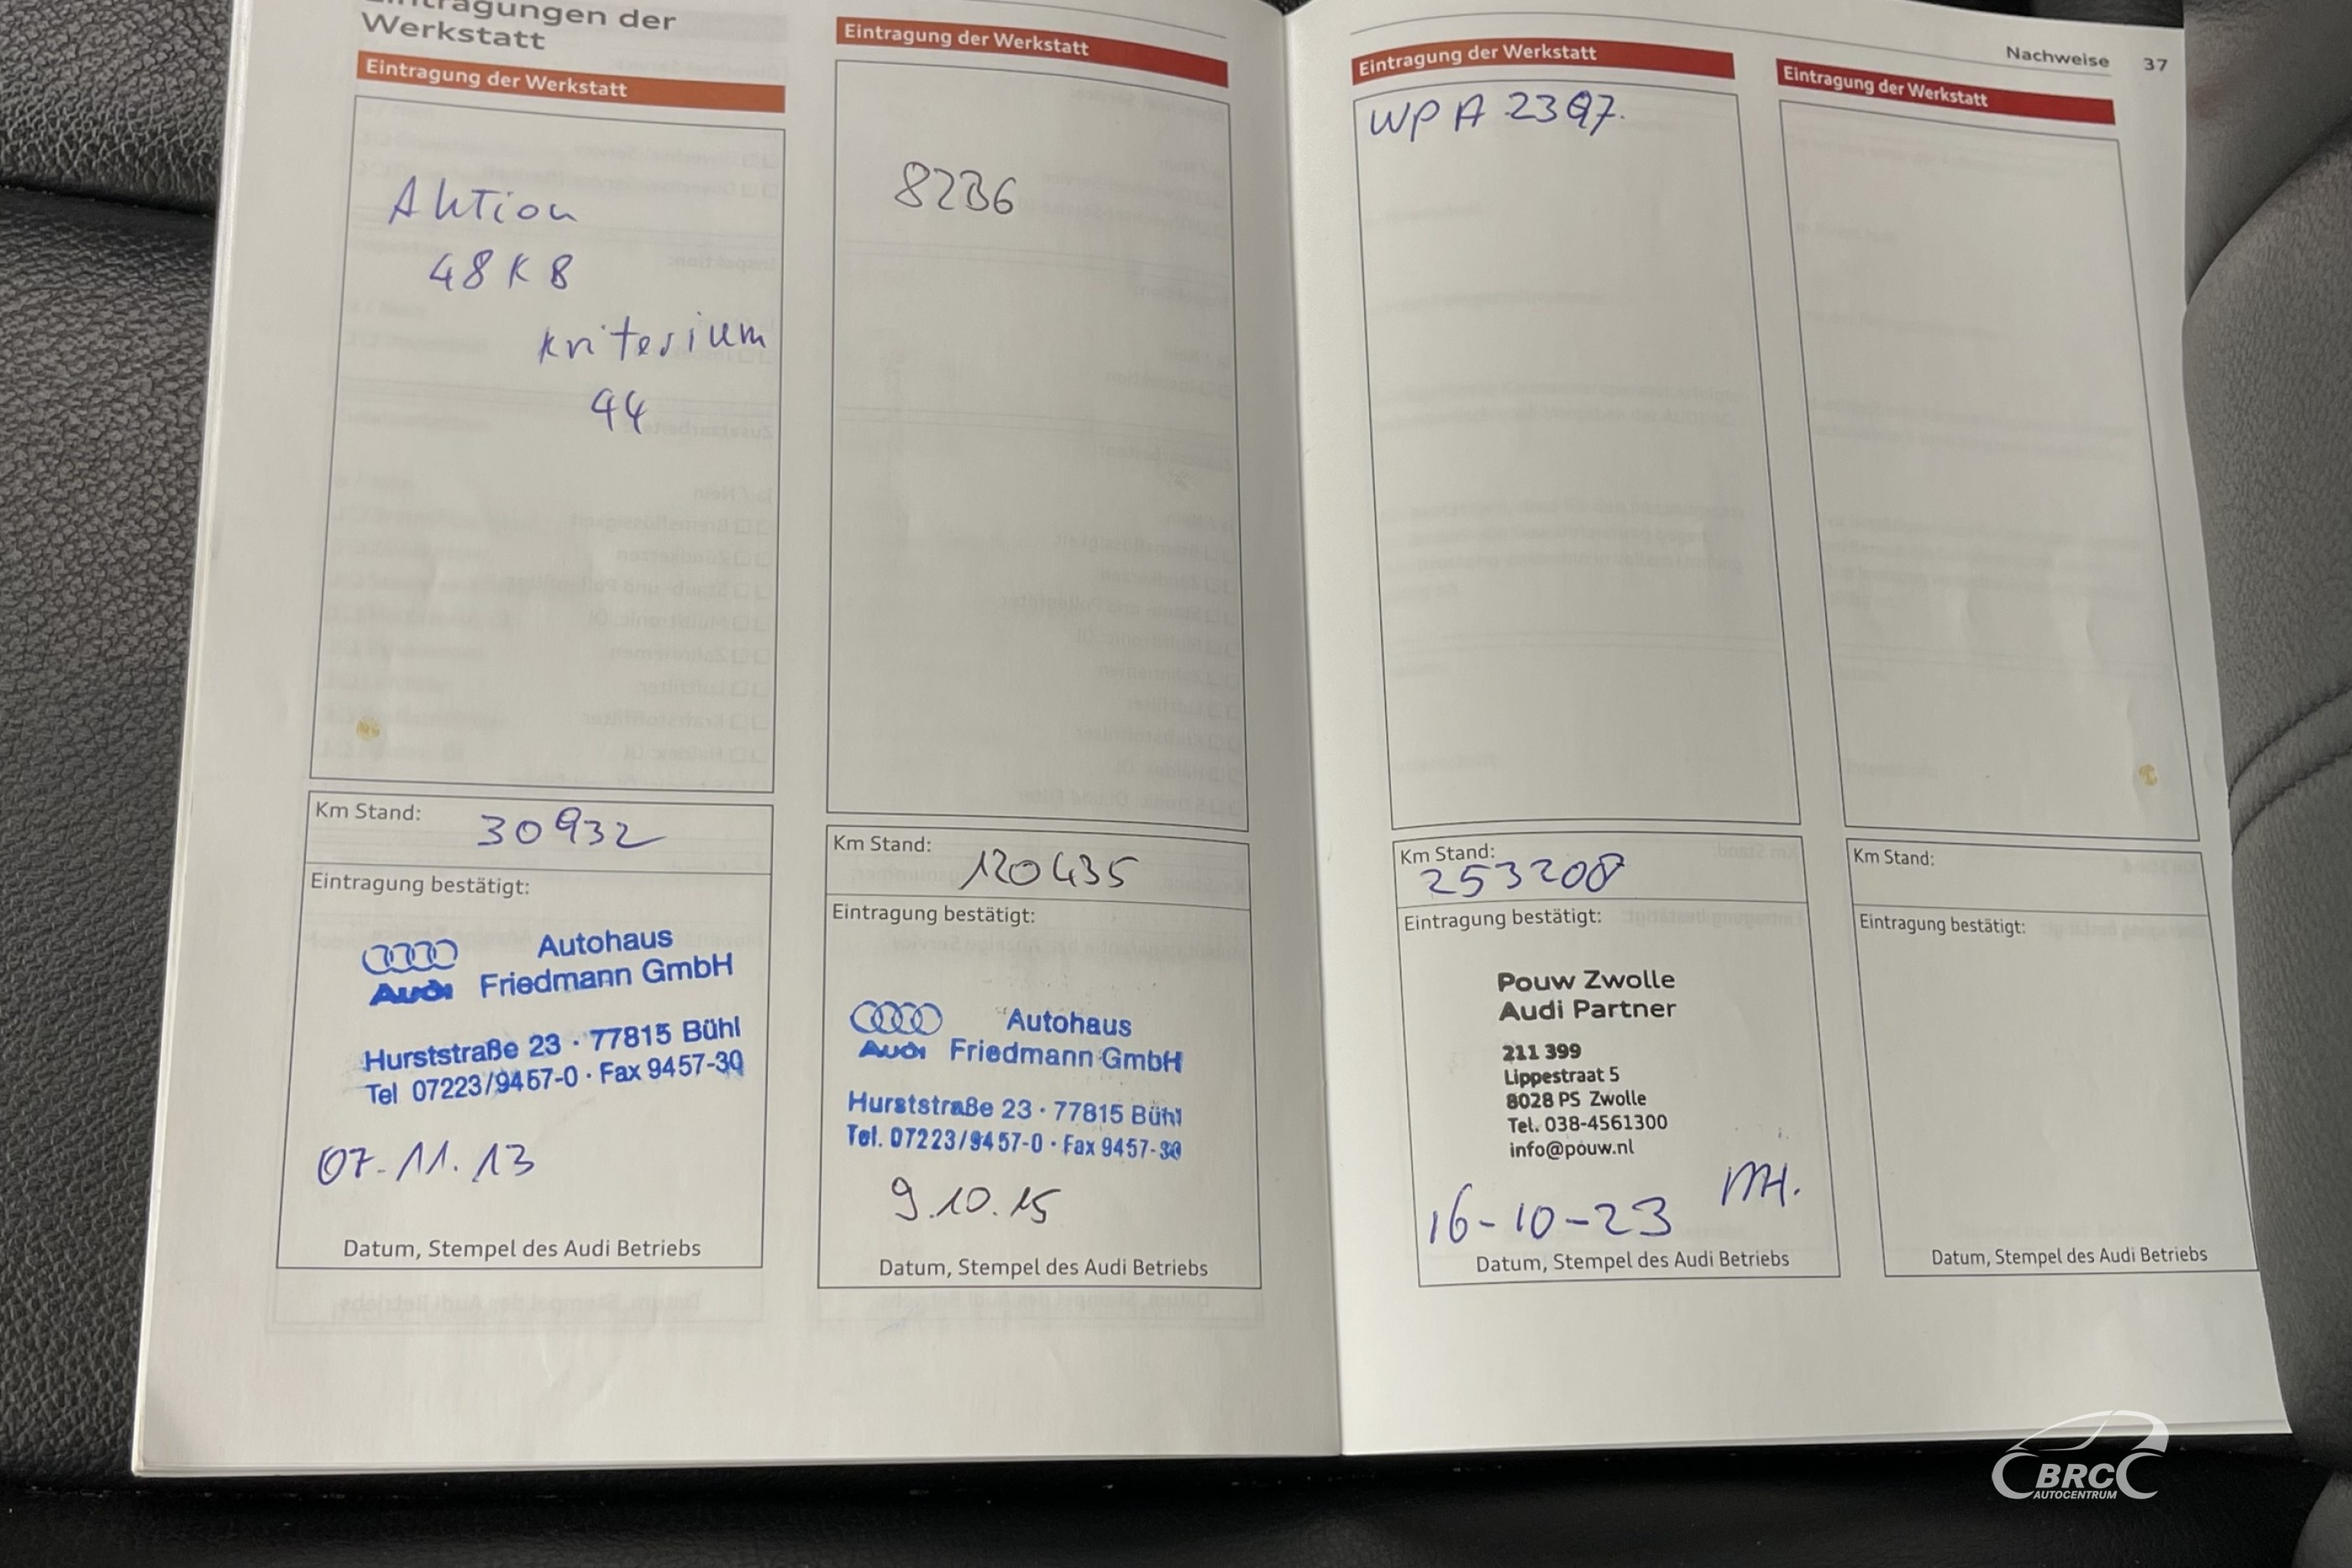 Eintragungen der
Werkstatt
Eintragung der Werkstatt
Aktion
48K8
Kriterium
44
Km Stand: 30932
Eintragung bestätigt:
Audi
Autohaus
Friedmann GmbH
Hurststraße 23 · 77815 Bühl
Tel 07223/9457-0 · Fax 9457-30
07.11.13
Datum, Stempel des Audi Betriebs
Eintragung der Werkstatt
82B6
Km Stand: 120435
Eintragung bestätigt:
Audi
Autohaus
Friedmann GmbH
Hurststraße 23 · 77815 Bühl
Tel. 07223/9457-0 · Fax 9457-30
9.10.15
Datum, Stempel des Audi Betriebs
Nachweise 37
Eintragung der Werkstatt
WPA 23Q7.
Km Stand:
253208
Eintragung bestätigt:
Pouw Zwolle
Audi Partner
211 399
Lippestraat 5
8028 PS Zwolle
Tel. 038-4561300
info@pouw.nl
MH.
16-10-23
Datum, Stempel des Audi Betriebs
Eintragung der Werkstatt
Km Stand:
Eintragung bestätigt:
Datum, Stempel des Audi Betriebs
BRC
AUTOCENTRUM